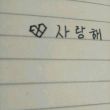 사랑해